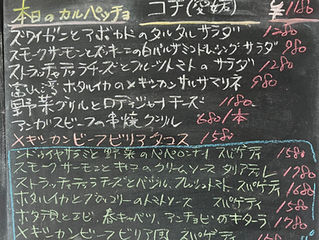 本日のカルパッチョ コチ(愛媛) ¥1180
ズワイガニとアボカドのタルタルサラダ 1280
スモークサーモンとズッキーニの白バルサミコドレッシングサラダ 980
ストラッチャテッラチーズとフルーツトマトのサラダ 1280
富山湾ホタルイカのメキシカンサルサマリネ 980
野菜グリルとロティ チーズ 1180
アンガスビーフの串焼グリル 680/本
メキシカンビーフビリアタコス 1580
と野菜のペペロンチーノ スパゲティ 1580
スモークサーモンとキノコのクリームソース タリアテッレ 1780
ストラッチャテッラチーズとバジル、フレッシュトマト スパゲティ 1680
ホタルイカとブロッコリーのトマトソース スパゲティ 1580
ホタテ貝とエビ、春キャベツ、アンチョビのキターラ 1780
メキシカンビーフビリア風 スパゲティ 1580